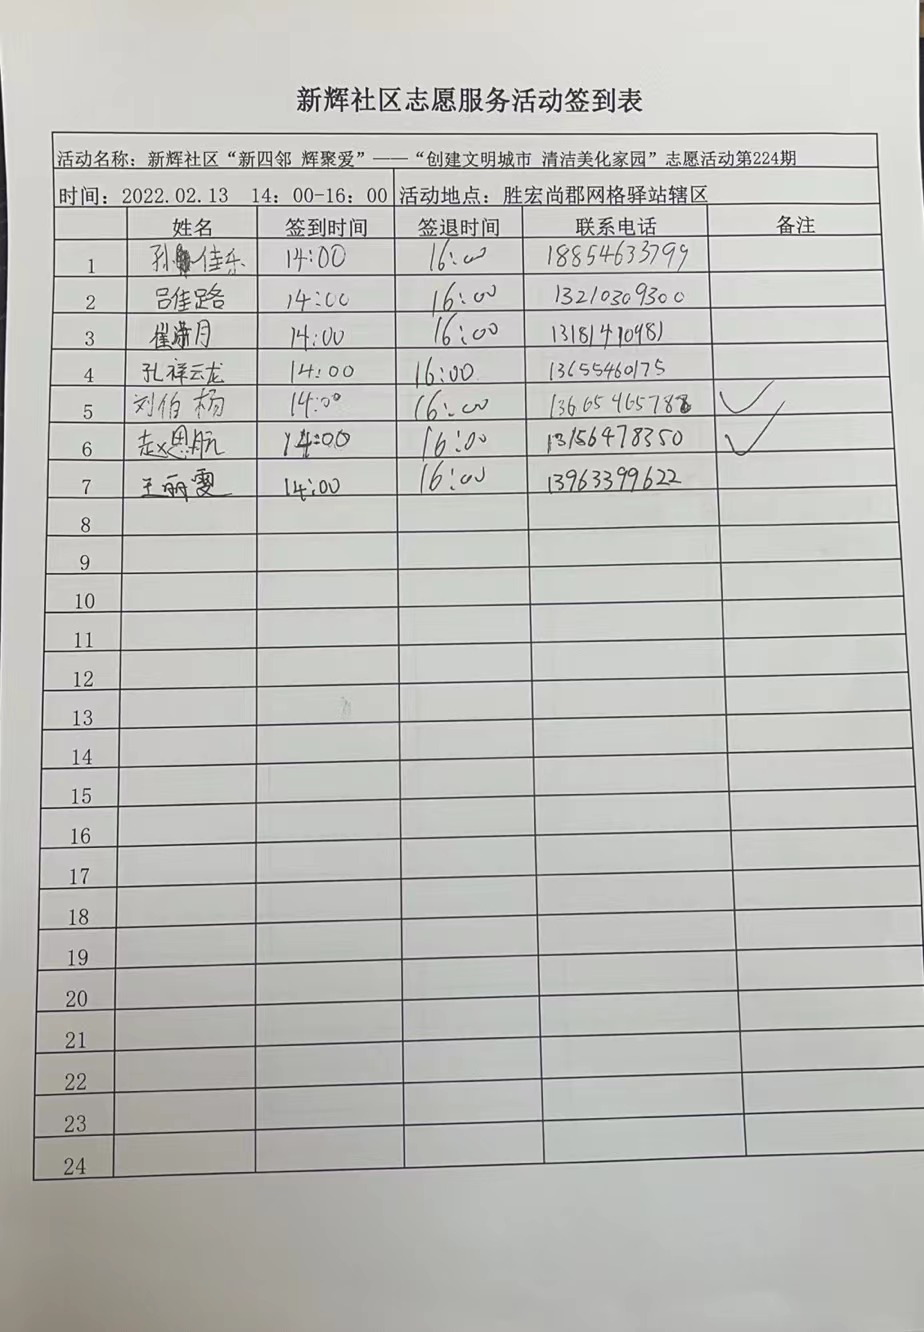 新辉社区志愿服务活动签到表
活动名称：新辉社区“新四邻 辉聚爱”——“创建文明城市 清洁美化家园”志愿活动第224期
时间：2022.02.13 14：00-16：00 活动地点：胜宏尚郡网格驿站辖区
姓名 签到时间 签退时间 联系电话 备注
1 孙佳乐 14:00 16:00 18854633799
2 吕佳路 14:00 16:00 13210309300
3 崔潇月 14:00 16:00 13181410981
4 孔祥云龙 14:00 16:00 13655460175
5 刘伯杨 14:00 16:00 13665465788 ✓
6 赵思航 14:00 16:00 13156478350 ✓
7 王丽雯 14:00 16:00 13963399622
8
9
10
11
12
13
14
15
16
17
18
19
20
21
22
23
24